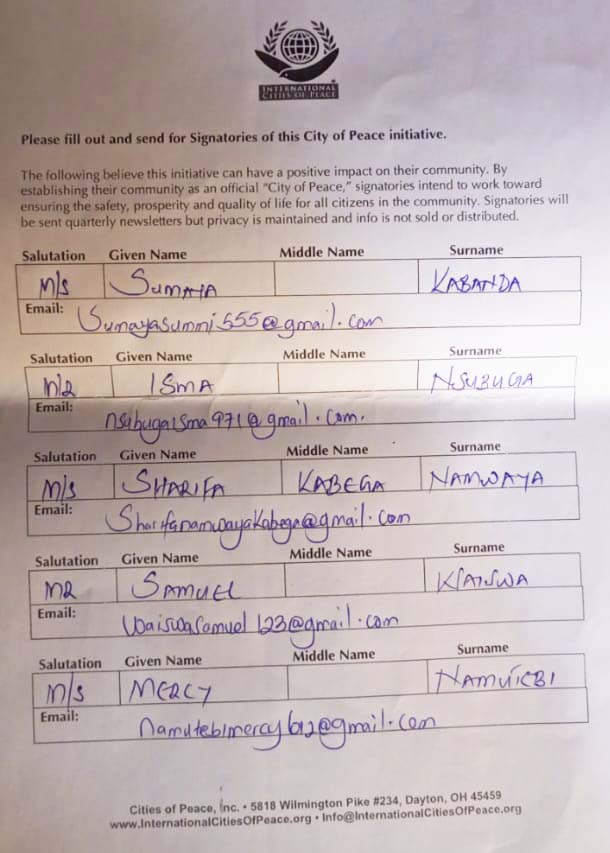 INTERNATIONAL
CITIES OF PEACE
Please fill out and send for Signatories of this City of Peace initiative.
The following believe this initiative can have a positive impact on their community. By
establishing their community as an official "City of Peace," signatories intend to work toward
ensuring the safety, prosperity and quality of life for all citizens in the community. Signatories will
be sent quarterly newsletters but privacy is maintained and info is not sold or distributed.
Salutation Given Name Middle Name Surname
M/S SUMAYA KABANDA
Email: Sumayasumni555@gmail.com
Salutation Given Name Middle Name Surname
MR ISMA NSUBUGA
Email: nsubugaisma971@gmail.com.
Salutation Given Name Middle Name Surname
M/S SHARIFA KABEGA NAMWAYA
Email: Sharifanamwayakabega@gmail.com
Salutation Given Name Middle Name Surname
MR SAMUEL
Email: Waiswasamuel123@gmail.com
Salutation Given Name Middle Name Surname
M/S MERCY NAMUTEBI
Email: namutebimercy612@gmail.com
Cities of Peace, Inc. • 5818 Wilmington Pike #234, Dayton, OH 45459
www.InternationalCitiesOfPeace.org • Info@InternationalCitiesOfPeace.org